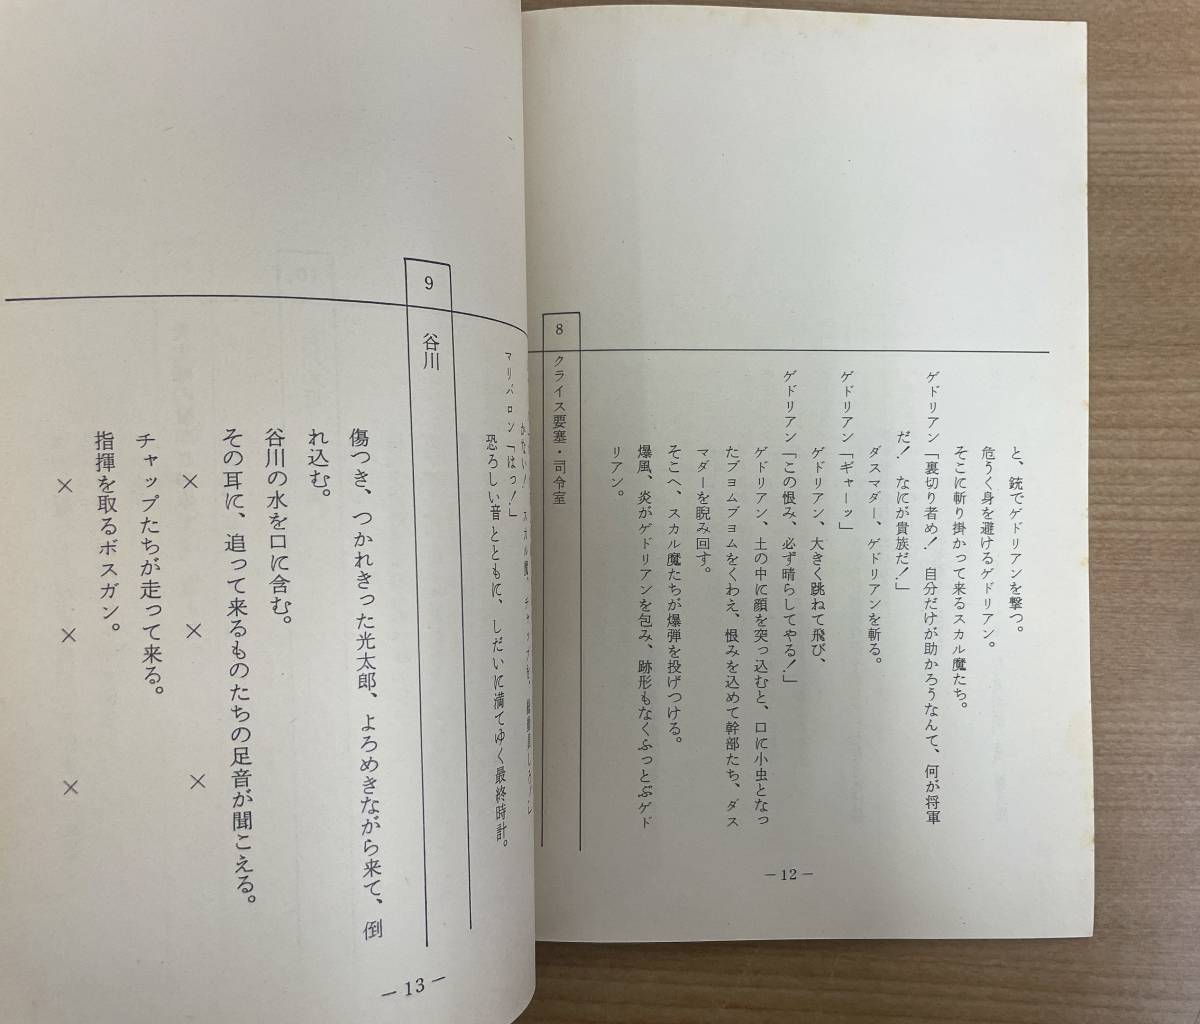 と、銃でゲドリアンを撃つ。
危うく身を避けるゲドリアン。
そこに斬り掛かって来るスカル魔たち。
ゲドリアン「裏切り者め! 自分だけが助かろうなんて、何が将軍
だ! なにが貴族だ!」
ダスマダー、ゲドリアンを斬る。
ゲドリアン「ギャーッ」
ゲドリアン、大きく跳ねて飛び、
ゲドリアン「この恨み、必ず晴らしてやる!」
ゲドリアン、土の中に顔を突っ込むと、口に小虫となっ
たブヨムブヨムをくわえ、恨みを込めて幹部たち、ダス
マダーを睨み回す。
そこへ、スカル魔たちが爆弾を投げつける。
爆風、炎がゲドリアンを包み、跡形もなくふっとぶゲド
リアン。
8 クライス要塞・司令室
−12−
マリバロン「はっ!」
恐ろしい音とともに、しだいに満てゆく最終時計。
9 谷川
傷つき、つかれきった光太郎、よろめきながら来て、倒
れ込む。
谷川の水を口に含む。
その耳に、追って来るものたちの足音が聞こえる。
× × ×
チャップたちが走って来る。
指揮を取るボスガン。
× × ×
−13−